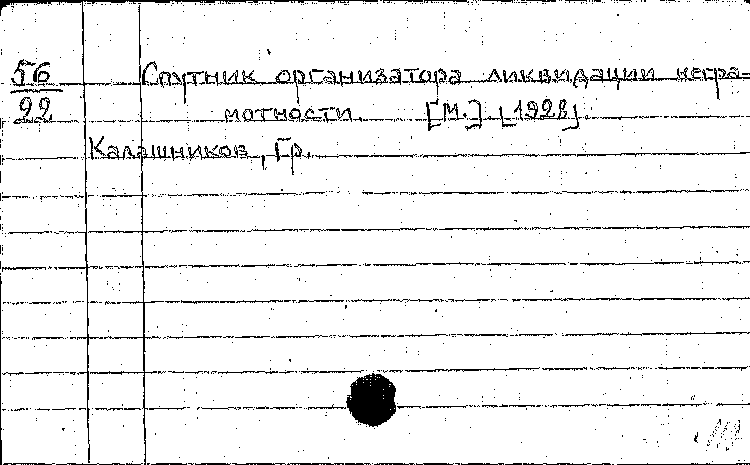 56 Спутник организатора ликвидации негра=
22 мотности. [М.]. [1928].
Калашников, Гр.